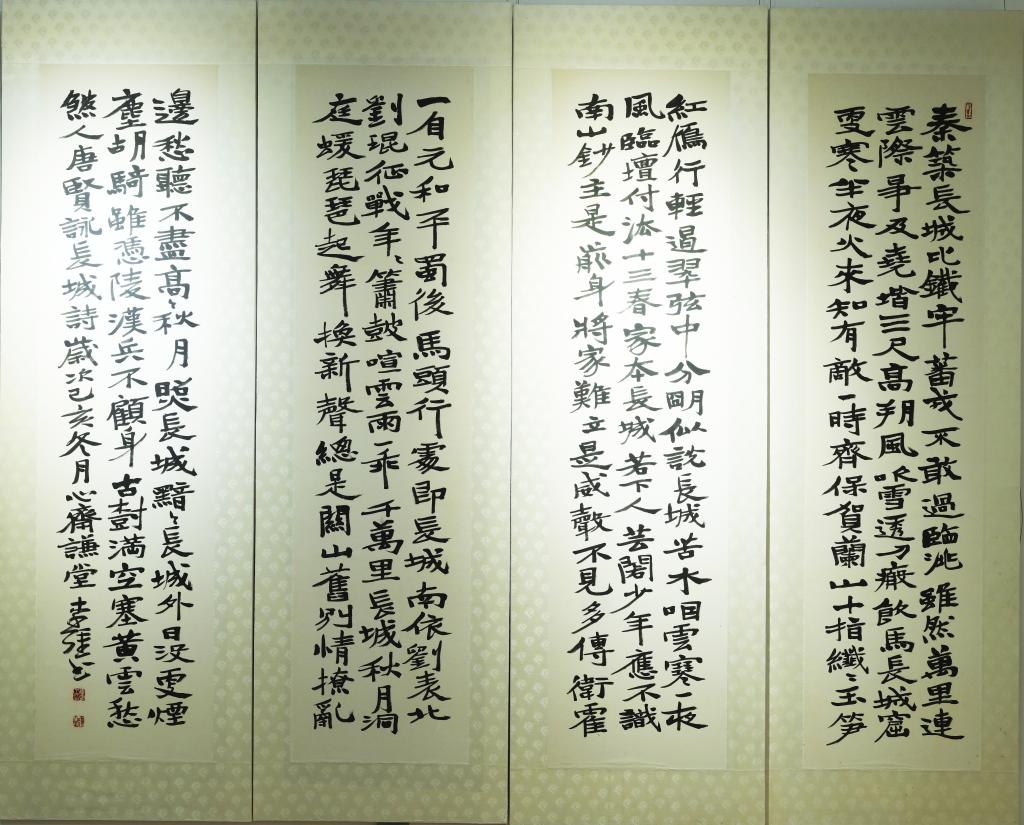 秦築長城比鐵牢蕃戎不敢過臨洮雖然萬里連
雲際爭及堯階三尺高朔風吹雪透刀瘢飲馬長城窟
更寒半夜火來知有敵一時齊保賀蘭山十指纖々玉笋
紅鴈行輕遏翠弦中分明似說長城苦水咽雲寒一夜
風臨壇付法十三春家本長城若下人芸閣少年應不識
南山鈔主是前身將家難立是威聲不見多傳衛霍
一自元和平蜀後馬頭行處即長城南依劉表北
劉琨征戰年々簫鼓喧雲雨一乖千萬里長城秋月洞
庭蝯琵琶起舞換新聲總是關山舊別情撩亂
邊愁聽不盡高々秋月照長城黯々長城外日沒更煙
塵胡騎雖憑陵漢兵不顧身古尌滿空塞黃雲愁
煞人唐賢詠長城詩歲次己亥冬月心齋謙堂李強書